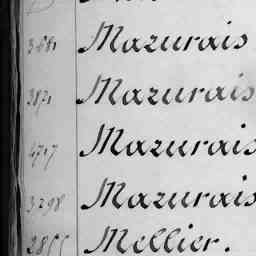 3681 Mazurais
3821 Mazurais
4717 Mazurais
3298 Mazurais
2855 Mellier.